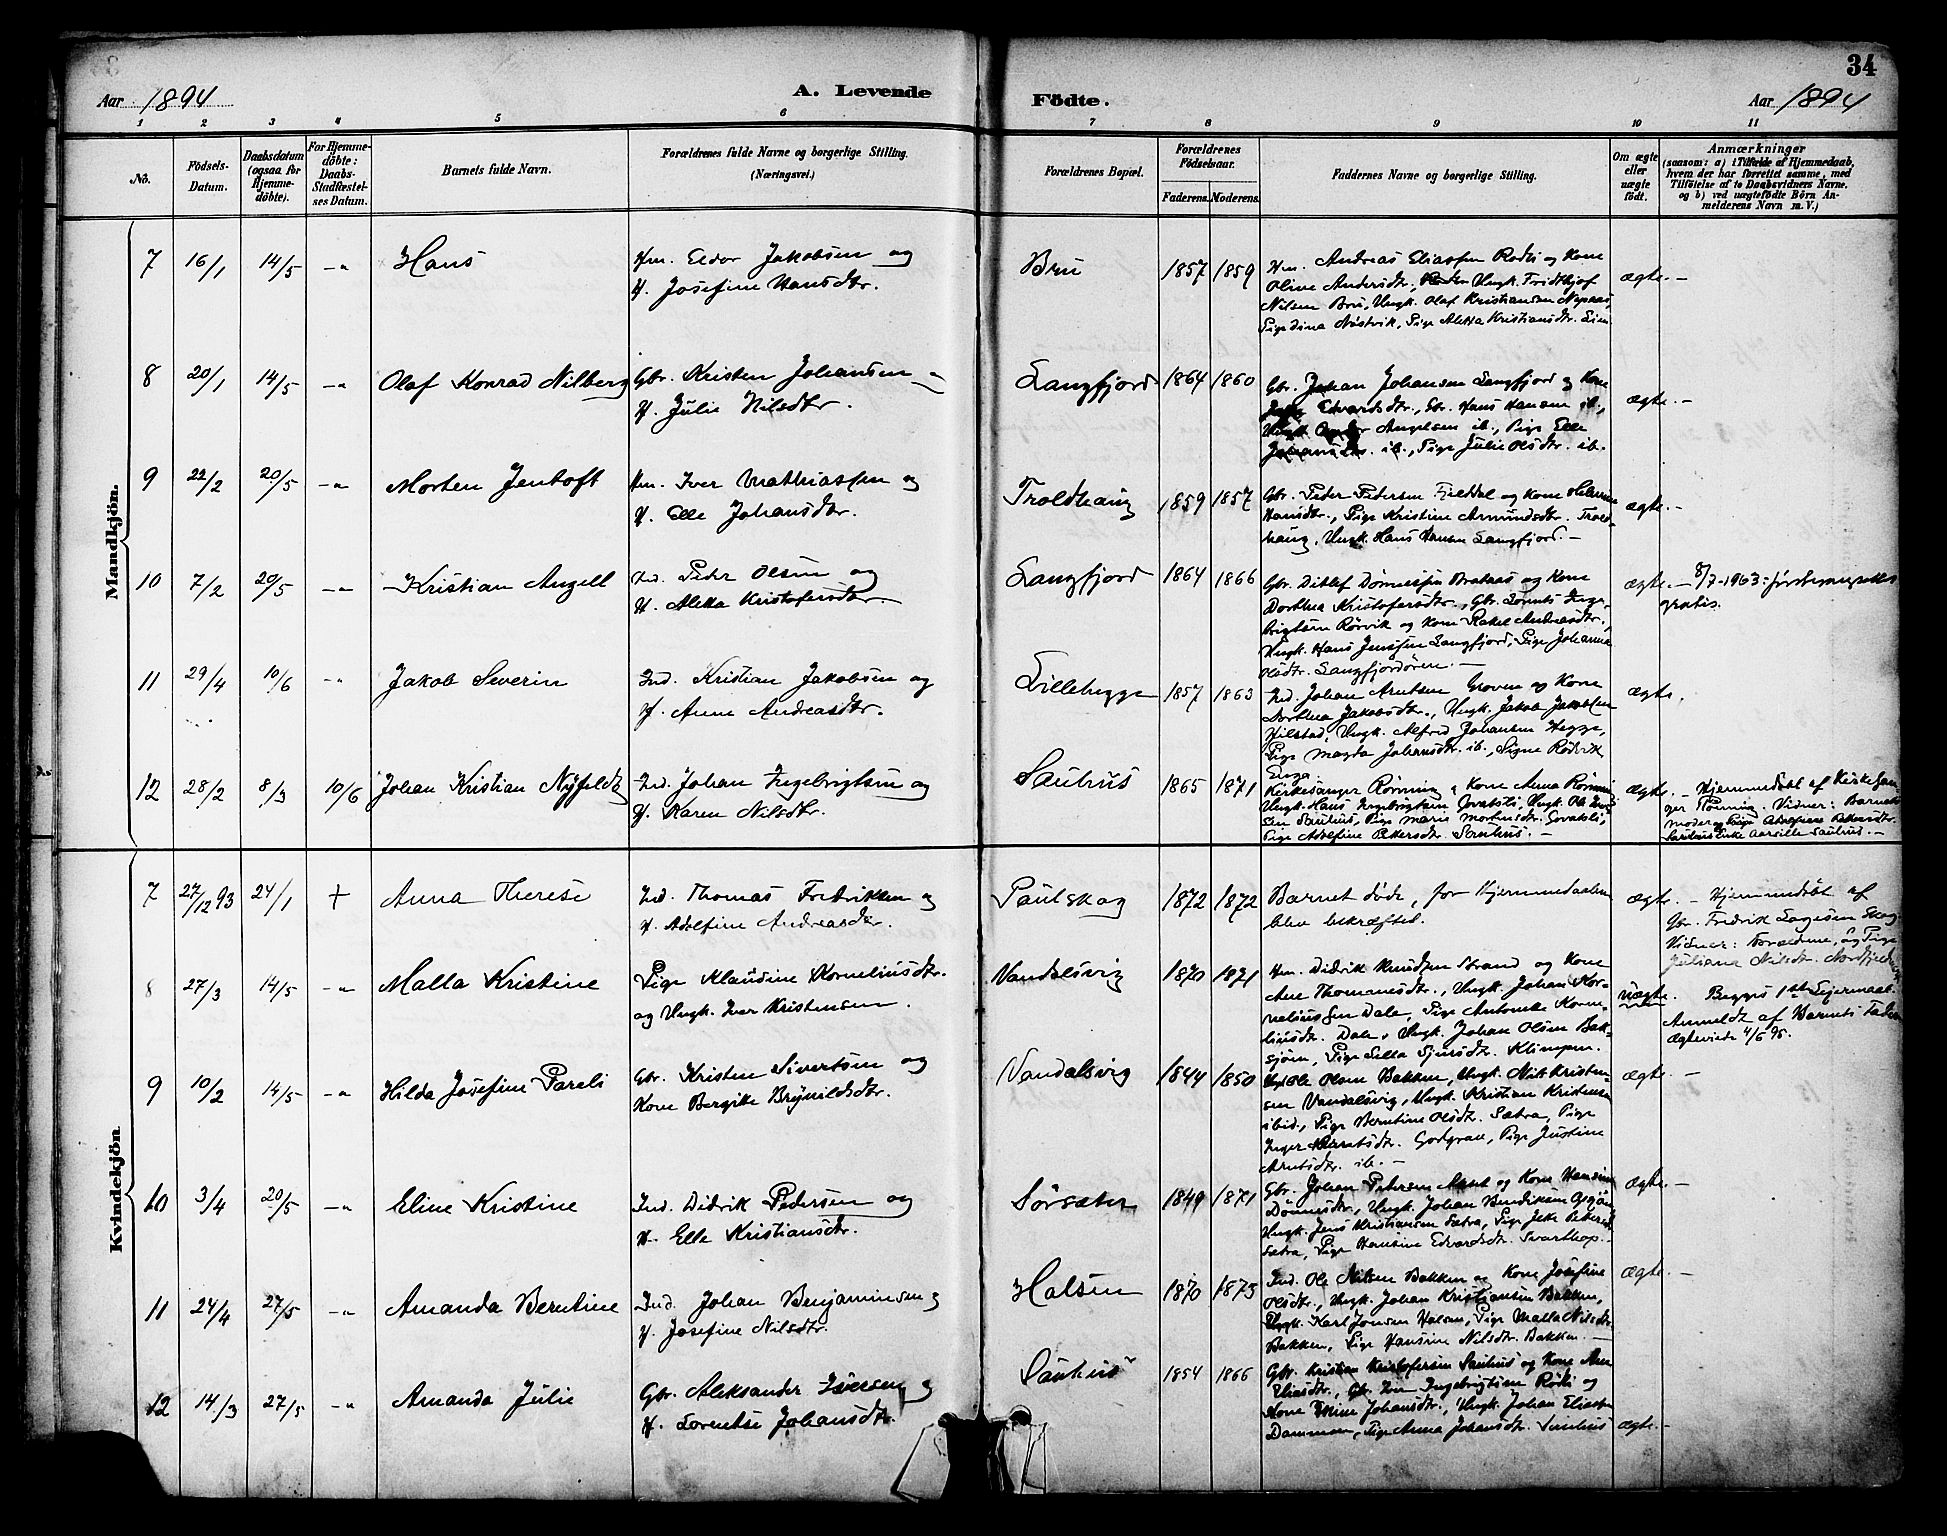 34
Aar 1894 A. Levende Födte. Aar 1894
1 2 3 4 5 6 7 8 9 10 11
No.
Födsels-
Datum.
Daabsdatum
(ogsaa for
Hjemme-
döbte).
For Hjemme-
döbte:
Daabs-
Stadfæstel-
ses Datum.
Barnets fulde Navn.
Forældrenes fulde Navne og borgerlige Stilling.
(Næringsvei.)
Forældrenes Bopæl.
Forældrenes
Födselsaar.
Faderens. Moderens.
Faddernes Navne og borgerlige Stilling.
Om ægte
eller
uægte
født.
Anmærkninger
(saasom: a) i Tilfælde af Hjemmedaab,
hvem der har forrettet samme, med
Tilföielse af to Daabsvidners Navne,
og b) ved uægtefödte Börn An-
melderens Navn m. V.)
Mandkjön.
7 16/1 14/5 -„- Hans
Hm. Eldor Jakobsen og
H. Josefine Hansdtr.
Bru 1857 1859
Hm. Andreas Eliassen Rødli og Kone
Olive Andersdtr., Ungk. Fridthjof
Nilsen Bru, Ungk. Olaf Kristiansen Nepaas,
Pige Dina Nøstvik, Pige Aletta Kristiansdtr. Lim
ægte. -
8 20/1 14/5 -„- Olaf Konrad Nilberg
Gbr. Kristen Johansen og
H. Julie Nilsdtr.
Langfjord 1864 1860
Gbr. Johan Johansen Langfjord og Kone
Edvardsdtr., Gbr. Hans Hansen ib.,
Ungk. Angelsen ib., Pige Elle
Johansdtr. ib., Pige Julie Olsdtr. ib.
ægte. -
9 22/2 20/5 -„- Morten Jentoft
Hm. Iver Mathiassen og
H. Elle Johansdtr.
Troldhaug 1859 1857
Gbr. Peder Pedersen Fjelddal og Kone Helmine
Hansdtr., Pige Kristine Amundsdtr. Trold-
haug, Ungk. Hans Hansen Langfjord. -
ægte. -
10 7/2 20/5 -„- Kristian Angell
Ind. Peder Olsen og
H. Aletta Kristofersdtr.
Langfjord 1864 1866
Gbr. Ditlef Dønnesen Bratnes og Kone
Dorthea Kristofersdtr., Gbr. Lornts Inge-
brigtsen Rørvik og Kone Rakel Andreasdtr.,
Ungk. Hans Jenssen Langfjord, Pige Johanna
Olsdtr. Langfjordören. -
ægte. - 8/7-1963: førstegangsattest
gratis.
11 29/4 10/6 -„- Jakob Severin
Ind. Kristian Jakobsen og
H. Anne Andreasdtr.
Lillehegge 1857 1863
Ind. Johan Arntsen Groven og Kone
Dorthea Jakobsdtr., Ungk. Jakob Jakobsen
Hilstad, Ungk. Alfred Johansen Hegge,
Pige Magda Johansdtr. ib., Signe Rödvik
Enga.
ægte.
12 28/2 8/3 10/6 Johan Kristian Nyfeldt
Ind. Johan Ingebrigtsen og
H. Karen Nilsdtr.
Sauhus 1865 1871
Kirkesanger Rønning og Kone Anna Rønning
Ungk. Hans Ingebrigtsen Govatsli, Ungk. Ole
sen Sauhus, Pige Marie Mortensdtr. Govatsli,
Pige Adolfine Petersdtr. Sauhus. -
ægte. - Hjemmedøbt af Kirkesan-
ger Rønning. Vidner: Barnets
moder og Pige Adolfine Petersdtr.
Sauhus. -
Kvindekjön
7 27/12 93 24/1 + Anna Therese
Ind. Thomas Fredriksen og
H. Adolfine Andreasdtr.
Paulskag 1872 1872
Barnet døde, før Hjemmedaaben
blev bekræftet.
ægte. - Hjemmedøbt af
Gbr. Fredrik Skag
Vidner: Forældrene, og Pige
Juliana Nilsdtr.
8 27/3 14/5 -„- Malla Kristine
Pige Klaudine Korneliusdtr.
og Ungk. Iver Kristensen.
Vandalsvig 1870 1871
Hm. Didrik Knudsen Strand og Kone
Ane Thomasdtr., Ungk. Johan Kor-
neliussen Dale, Pige Antonette Korne-
liusdtr. Dale, Ungk. Johan Olsen Bak-
sjøen, Pige Sella Sjursdtr. Klimpen.
uægte. Begges 1ste Leiermaal.
Anmeldt af Barnets Fader
ægteviede 4/6 95.
9 10/2 14/5 -„- Hilda Josefine Pareli
Gbr. Kristen Sivertsen og
Kone Bergitte Brynildsdtr.
Vandalsvig 1844 1850
Ole Olsen Bakken, Ungk. Nils Kristen-
sen Vandalsvig, Ungk. Kristian Kristensen
ibid., Pige Berntine Olsdtr. Sætra, Pige
Inger Berntsdtr. Godgrav, Pige Justine
Arntsdtr. ib. -
ægte. -
10 3/4 20/5 -„- Eline Kristine
Ind. Didrik Pedersen og
H. Elle Kristiansdtr.
Sörsæter 1849 1871
Gbr. Johan Petersen Aunet og Kone Hansine
Dönnesdtr., Ungk. Johan Bendiksen
Ungk. Jens Kristiansen Sætra, Pige Petersd.
Sætra, Pige Hansine Edvardsdtr. Svarthop. -
ægte. -
11 24/4 27/5 -„- Amanda Berntine
Ind. Johan Benjaminsen og
H. Josefine Nilsdtr.
Halsen 1870 1873
Ind. Ole Nilsen Bakken og Kone Josefine
Olsdtr., Ungk. Johan Kristiansen Bakken,
Ungk. Karl Jonsen Halsen, Pige Malla Nilsdtr.
Bakken, Pige Hansine Nilsdtr. Bakken. -
ægte. -
12 14/3 27/5 -„- Amanda Julie
Gbr. Aleksander Iversen og
H. Lorentse Johansdtr.
Sauhus 1854 1866
Gbr. Kristian Kristofersen Sauhus og Kone Ane
Eliasdtr., Gbr. Iver Ingebrigtsen Rødli og
Kone Johansdtr., Ungk. Johan Eliassen
Dammen, Pige Anna Johansdtr. Sauhus
ægte. -